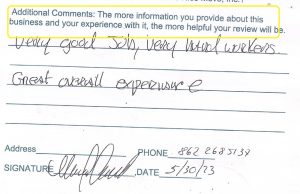 Additional Comments: The more information you provide about this
business and your experience with it, the more helpful your review will be.
Very good Job, Very hard workers.
Great overall experience
Address
PHONE 862 2685134
SIGNATURE DATE 5/30/23